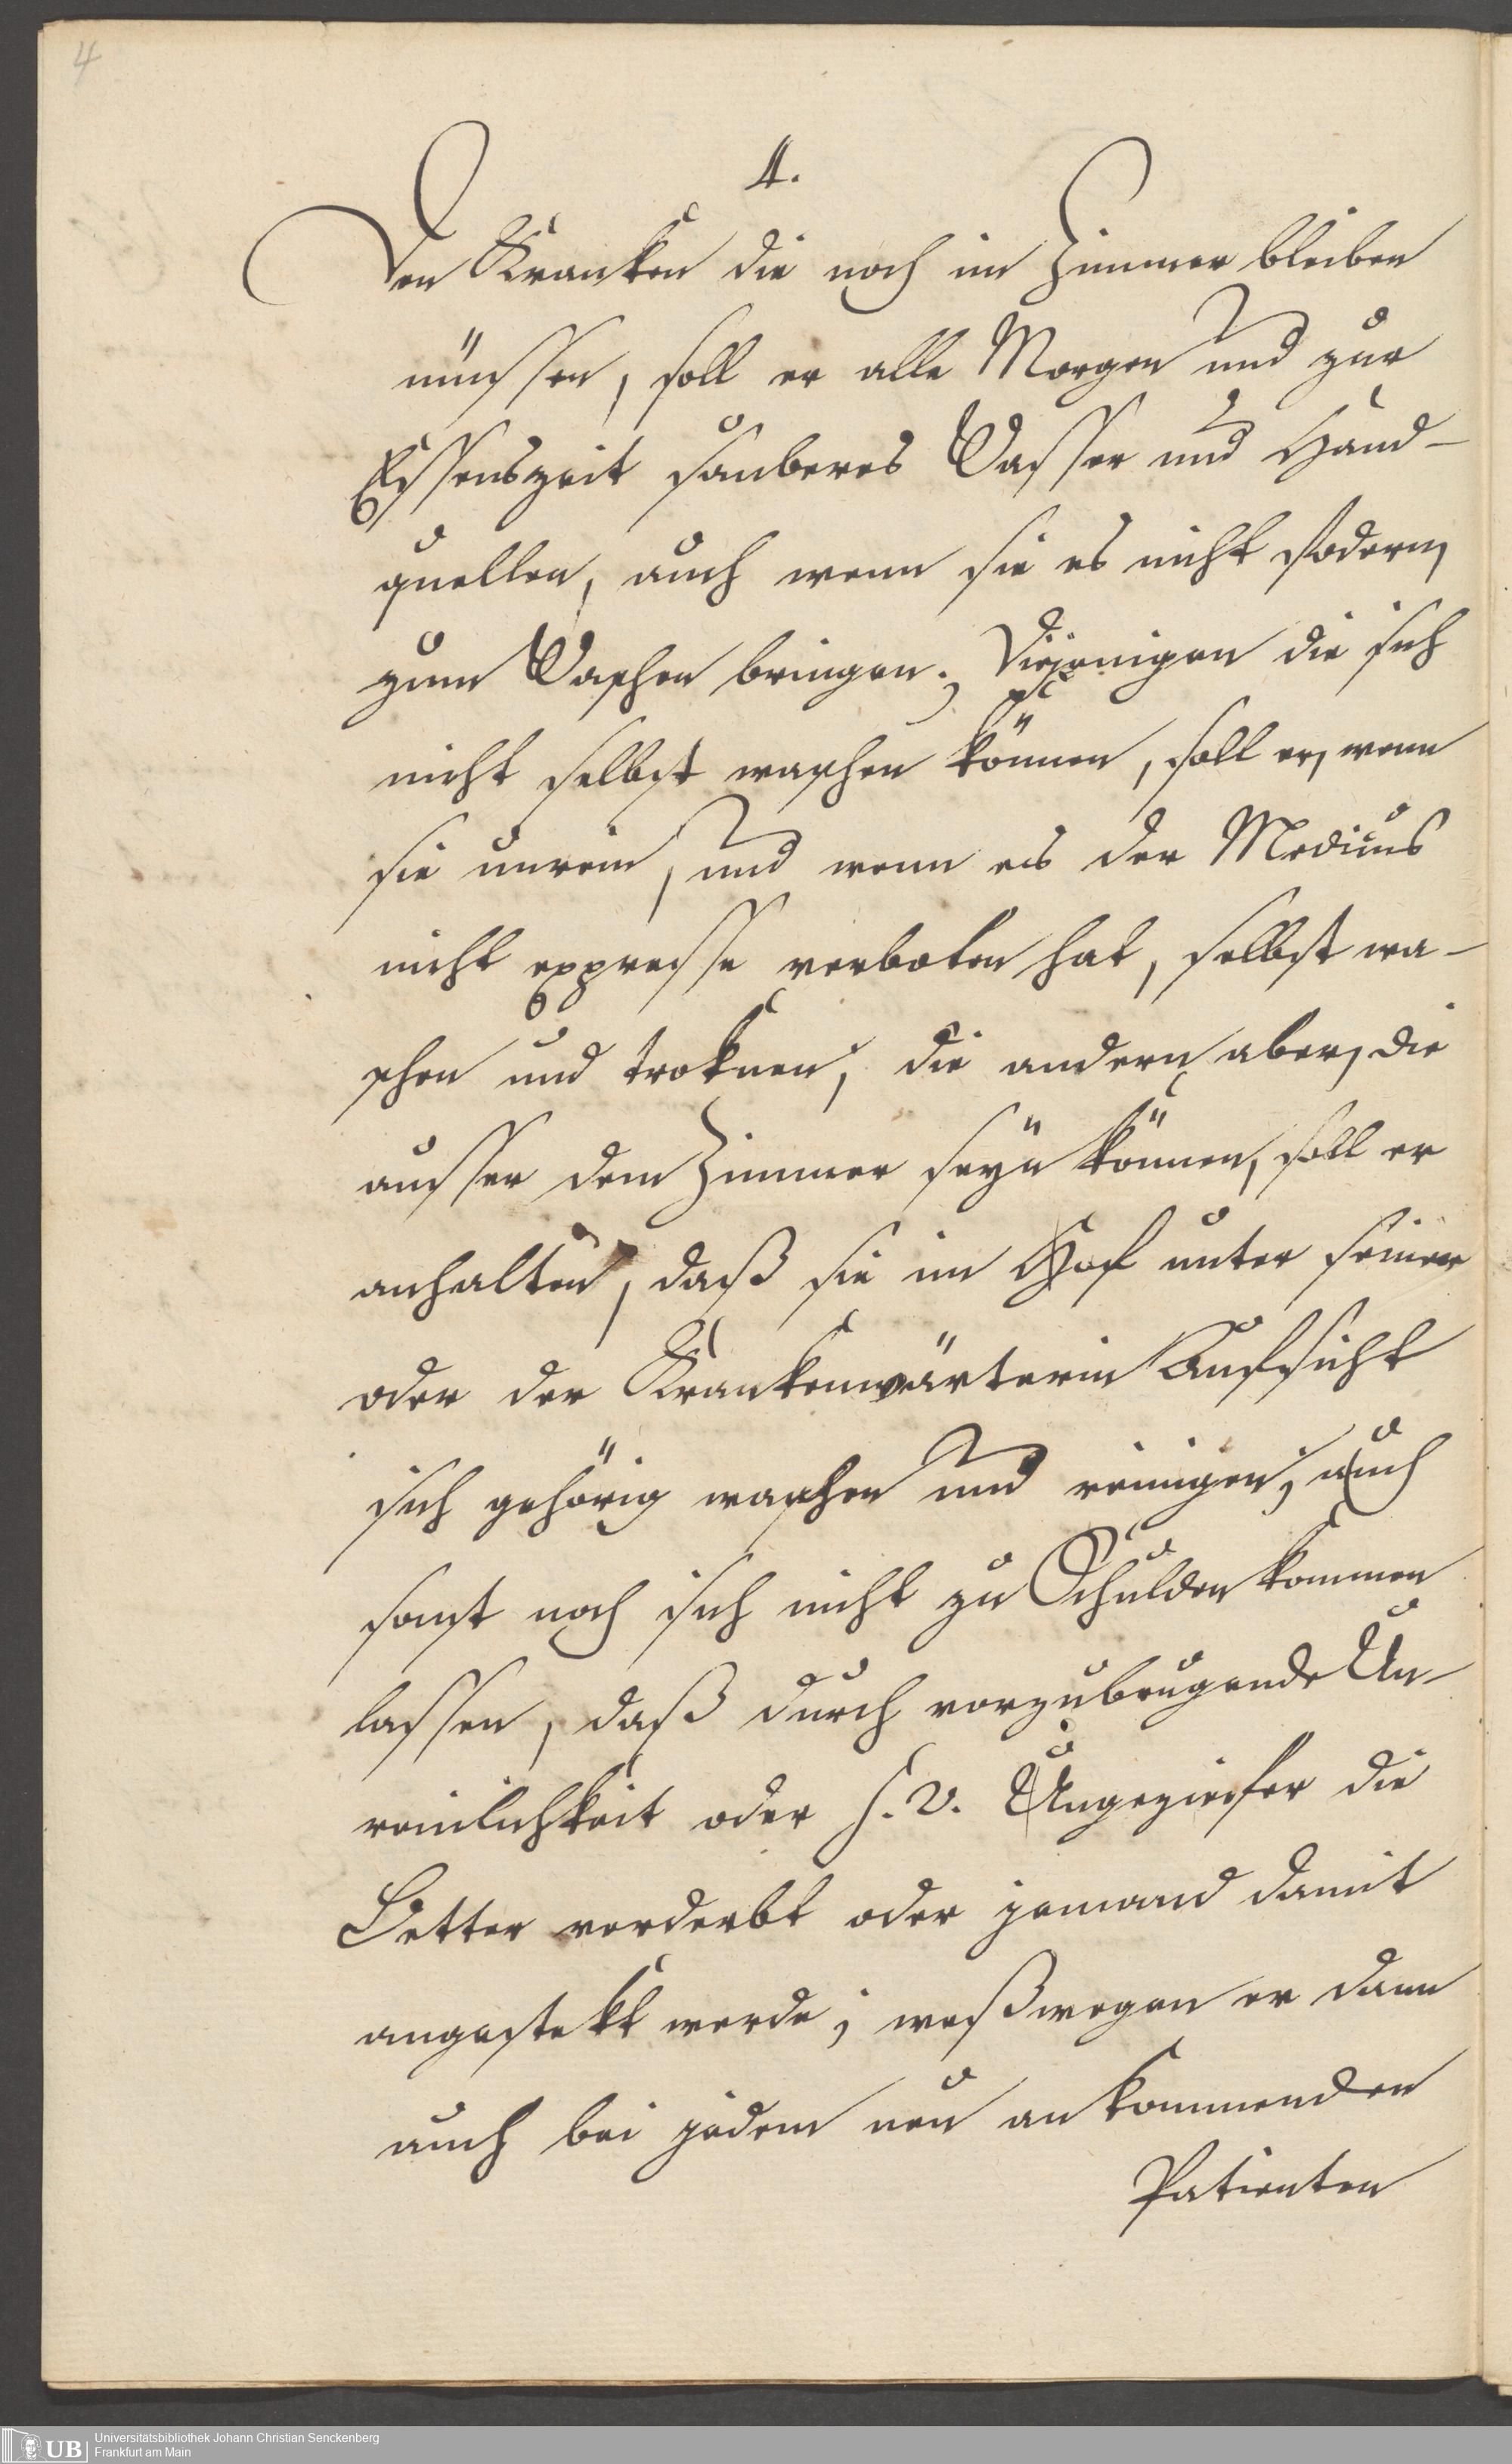 4
4.
Den Kranken die noch im Zimmer bleiben
müssen, soll er alle Morgen und zur
Essenszeit sauberes Wasser und Hand-
quellen, auch wenn sie es nicht fodern,
zum Waschen bringen. Diejenigen die sich
nicht selbst waschen können, soll er, wenn
sie unrein, und wenn es der Medicus
nicht expresse verboten hat, selbst wa-
schen und troknen; die andern aber, die
ausser dem Zimmer seyn können, soll er
anhalten, daß sie im Hof unter seiner
oder der Krankenwärterin Aufsicht
sich gehörig waschen und reinigen; auch
sonst noch sich nicht zu Schulden kommen
lassen, daß durch vorzubeugende Un-
reinlichkeit oder s. v. Ungeziefer die
Better verderbt oder jemand damit
angestekt werde; weßwegen er dann
auch bei jedem neu ankommenden
Patienten
UB
Universitätsbibliothek Johann Christian Senckenberg
Frankfurt am Main